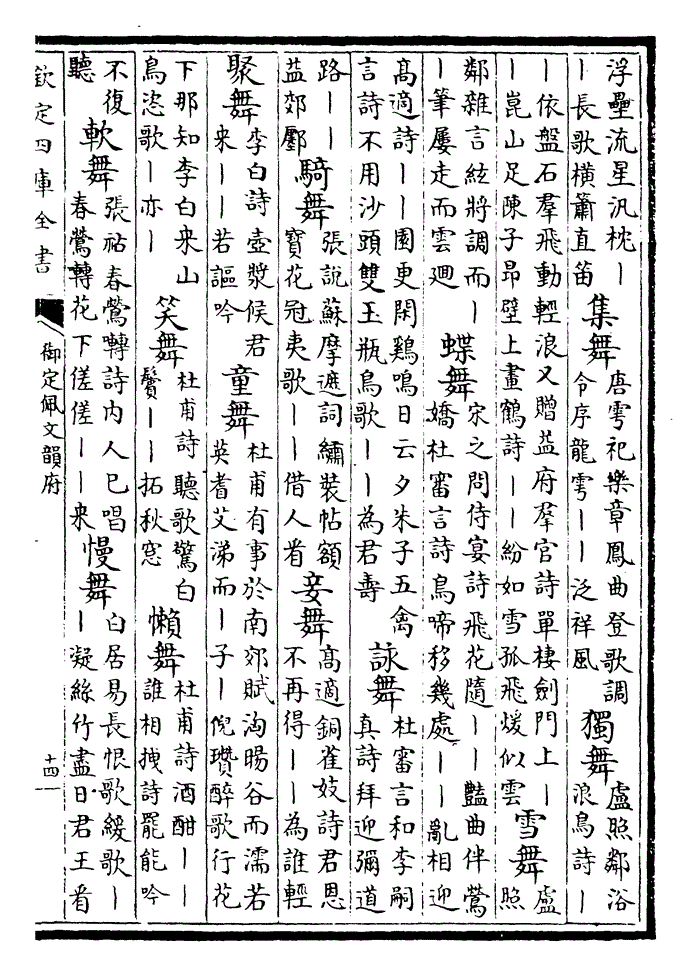 浮壘流星汎枕｜
｜長歌橫簫直笛
集舞
唐雩祀樂章鳳曲登歌調
令序龍雩｜｜泛祥風
獨舞
盧照鄰浴
浪鳥詩｜
｜依盤石羣飛動輕浪又贈益府羣官詩單棲劍門上｜
｜崑山足陳子昂壁上畫鶴詩｜｜紛如雪孤飛煖似雲
雪舞
盧
照
鄰雜言絃將調而｜
｜筆屢走而雲迴
蝶舞
宋之問侍宴詩飛花隨｜｜豔曲伴鶯
嬌杜審言詩鳥啼移幾處｜｜亂相迎
高適詩｜｜園更閑鷄鳴日云夕朱子五禽
言詩不用沙頭雙玉瓶鳥歌｜｜為君壽
詠舞
杜審言和李嗣
真詩拜迎彌道
路｜｜
益郊鄽
騎舞
張說蘇摩遮詞繡裝帖額
寶花冠夷歌｜｜借人看
妾舞
高適銅雀妓詩君恩
不再得｜｜為誰輕
聚舞
李白詩壺漿候君
來｜｜若謳吟
童舞
杜甫有事於南郊賦洶暘谷而濡若
英耆艾涕而｜子｜倪瓚醉歌行花
下那知李白來山
鳥恣歌｜亦｜
笑舞
杜甫詩聽歌驚白
鬢｜｜拓秋窓
懶舞
杜甫詩酒酣｜｜
誰相拽詩罷能吟
不復
聽
軟舞
張祜春鶯囀詩內人已唱
春鶯轉花下傞傞｜｜來
慢舞
白居易長恨歌緩歌｜
｜凝絲竹盡日君王看
欽定四庫全書
御定佩文韻府
十四